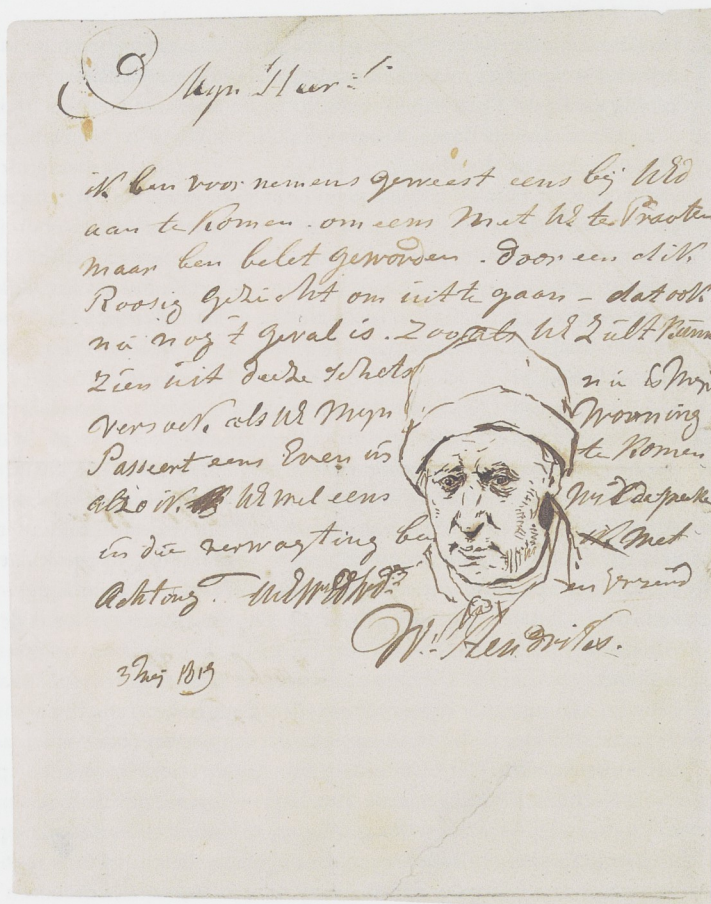 Mijn Heer
ik ben voornemens geweest eens bij UEd
aan te Komen. om eens Met UE te Praaten
maar ben belet geworden. door een dik
Roosig Gezicht om uit te gaan – dat ook
nu nog 't geval is. Zoo als UE Zult Kunn
Zien uit deeze schets nu is Mijn
versoek als UE Mijn Wooning
Passeert eens Even in te Komen
alzo ik UE wel eens
in die verwagting Met
Achting. en Vriend
W: Hendriks.
3 Meij 1819